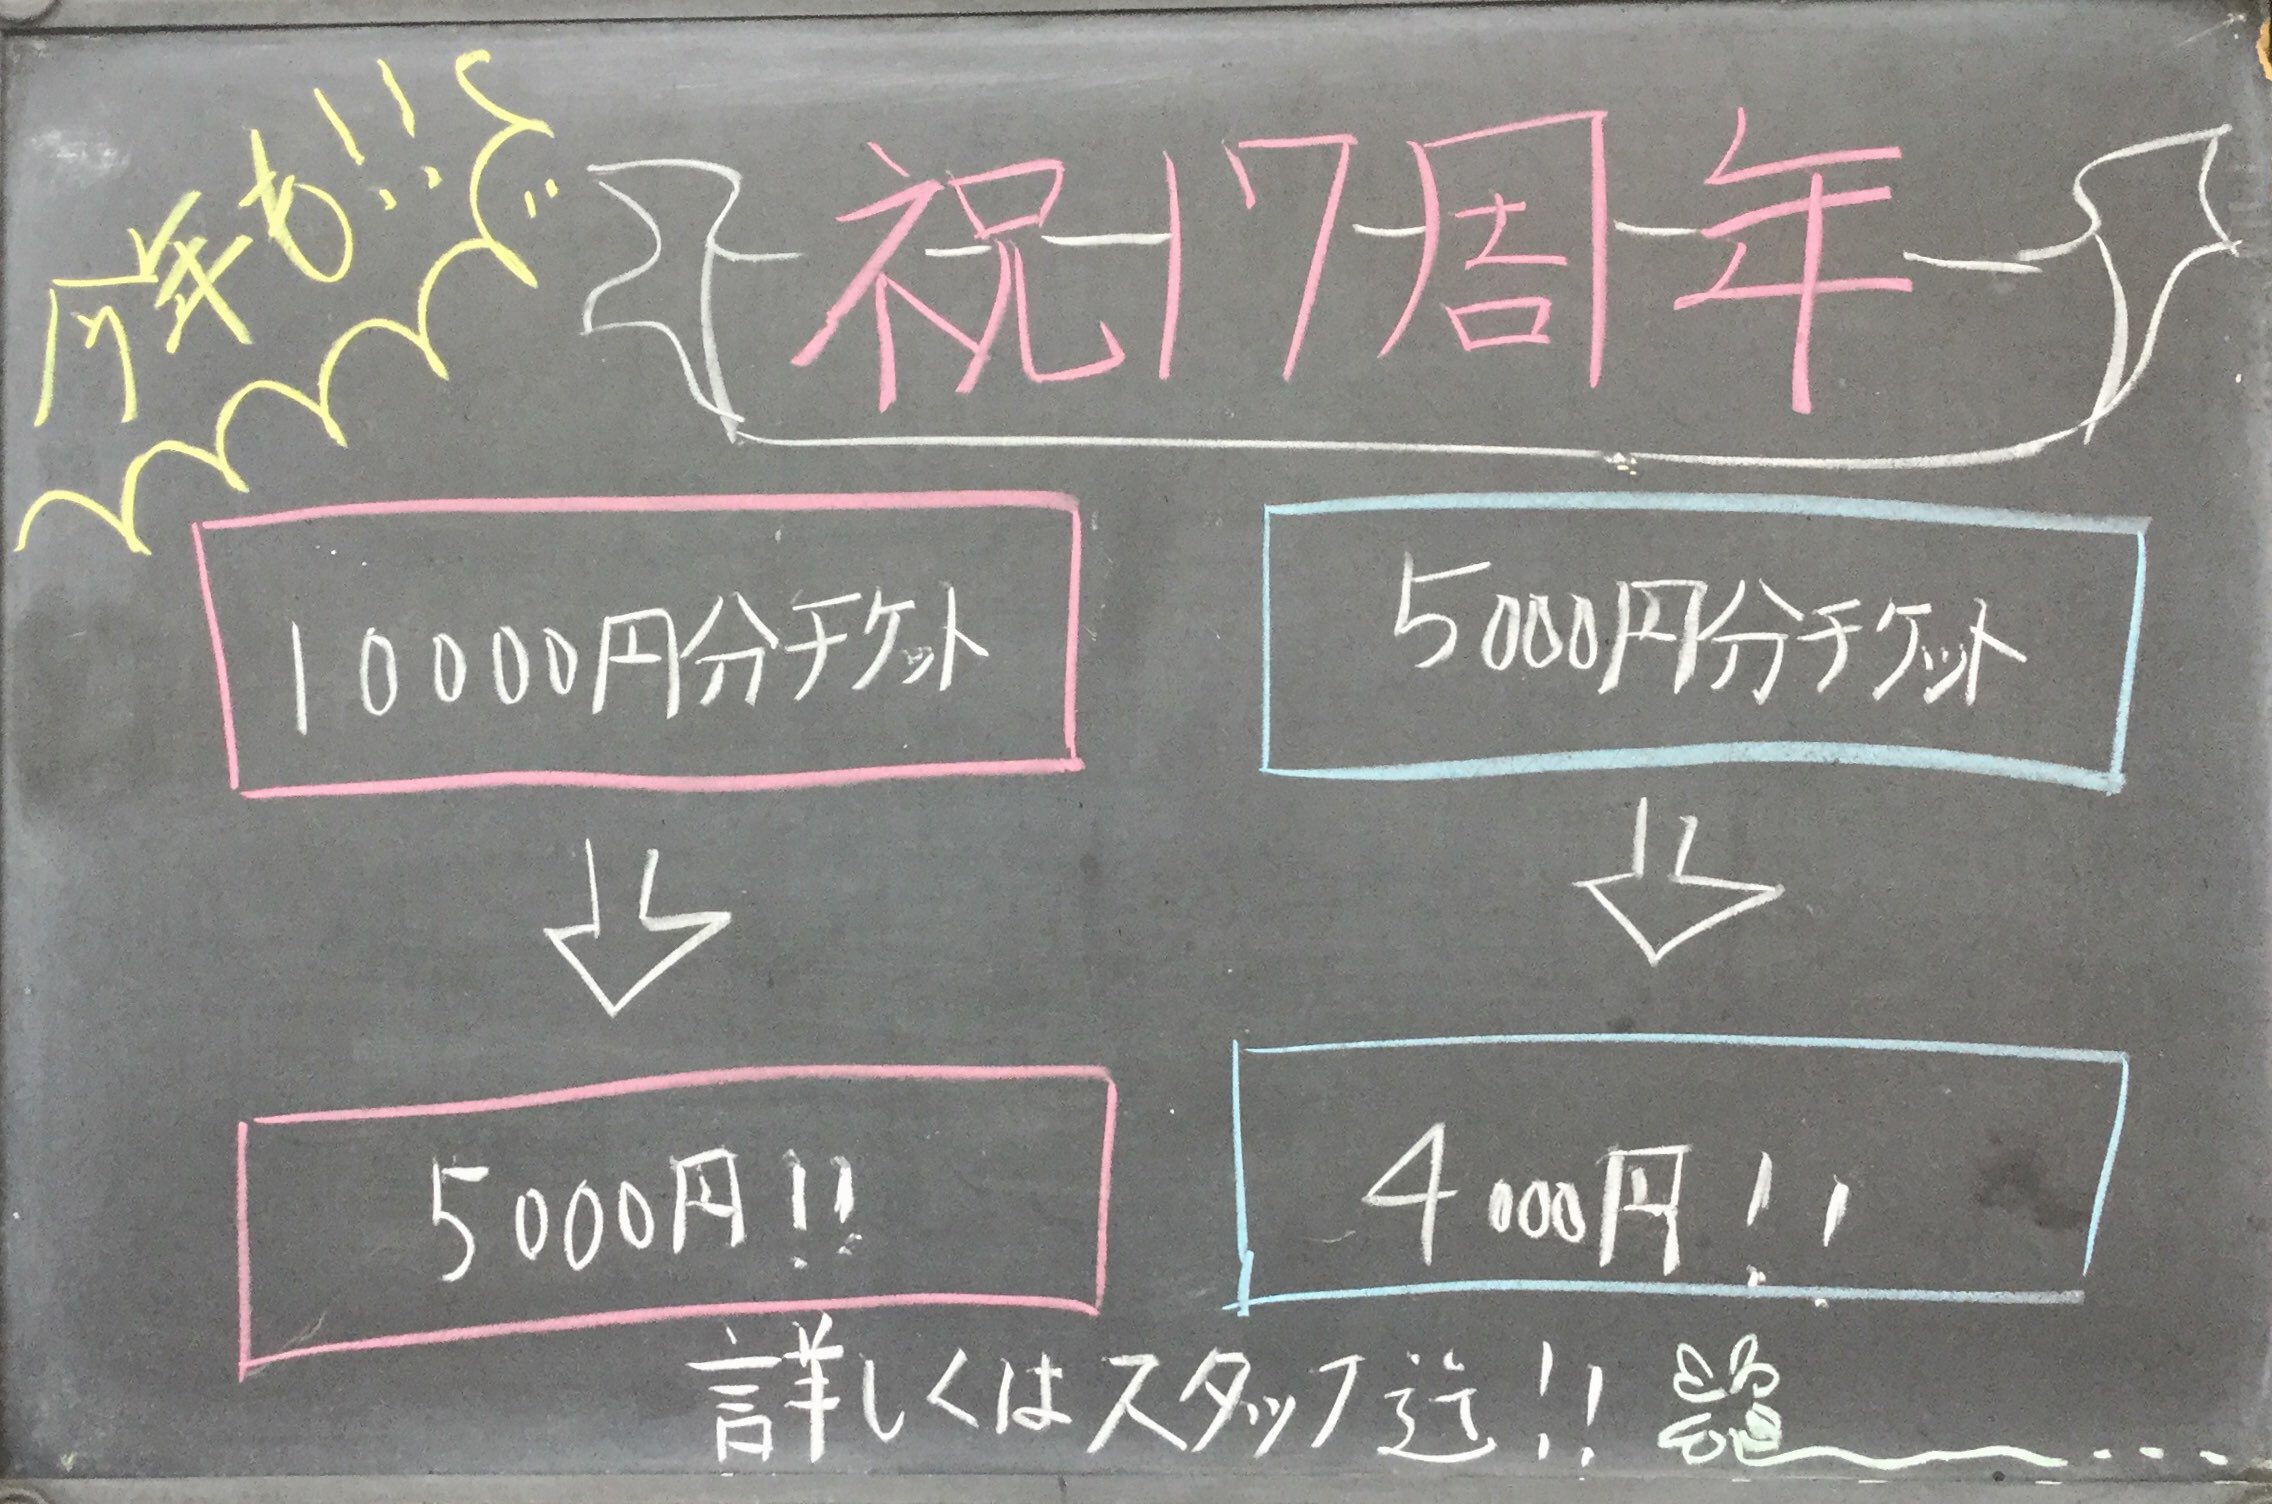 今年も!!
祝17周年
10000円分チケット
5000円分チケット
5000円!!
4000円!!
詳しくはスタッフ迄!!